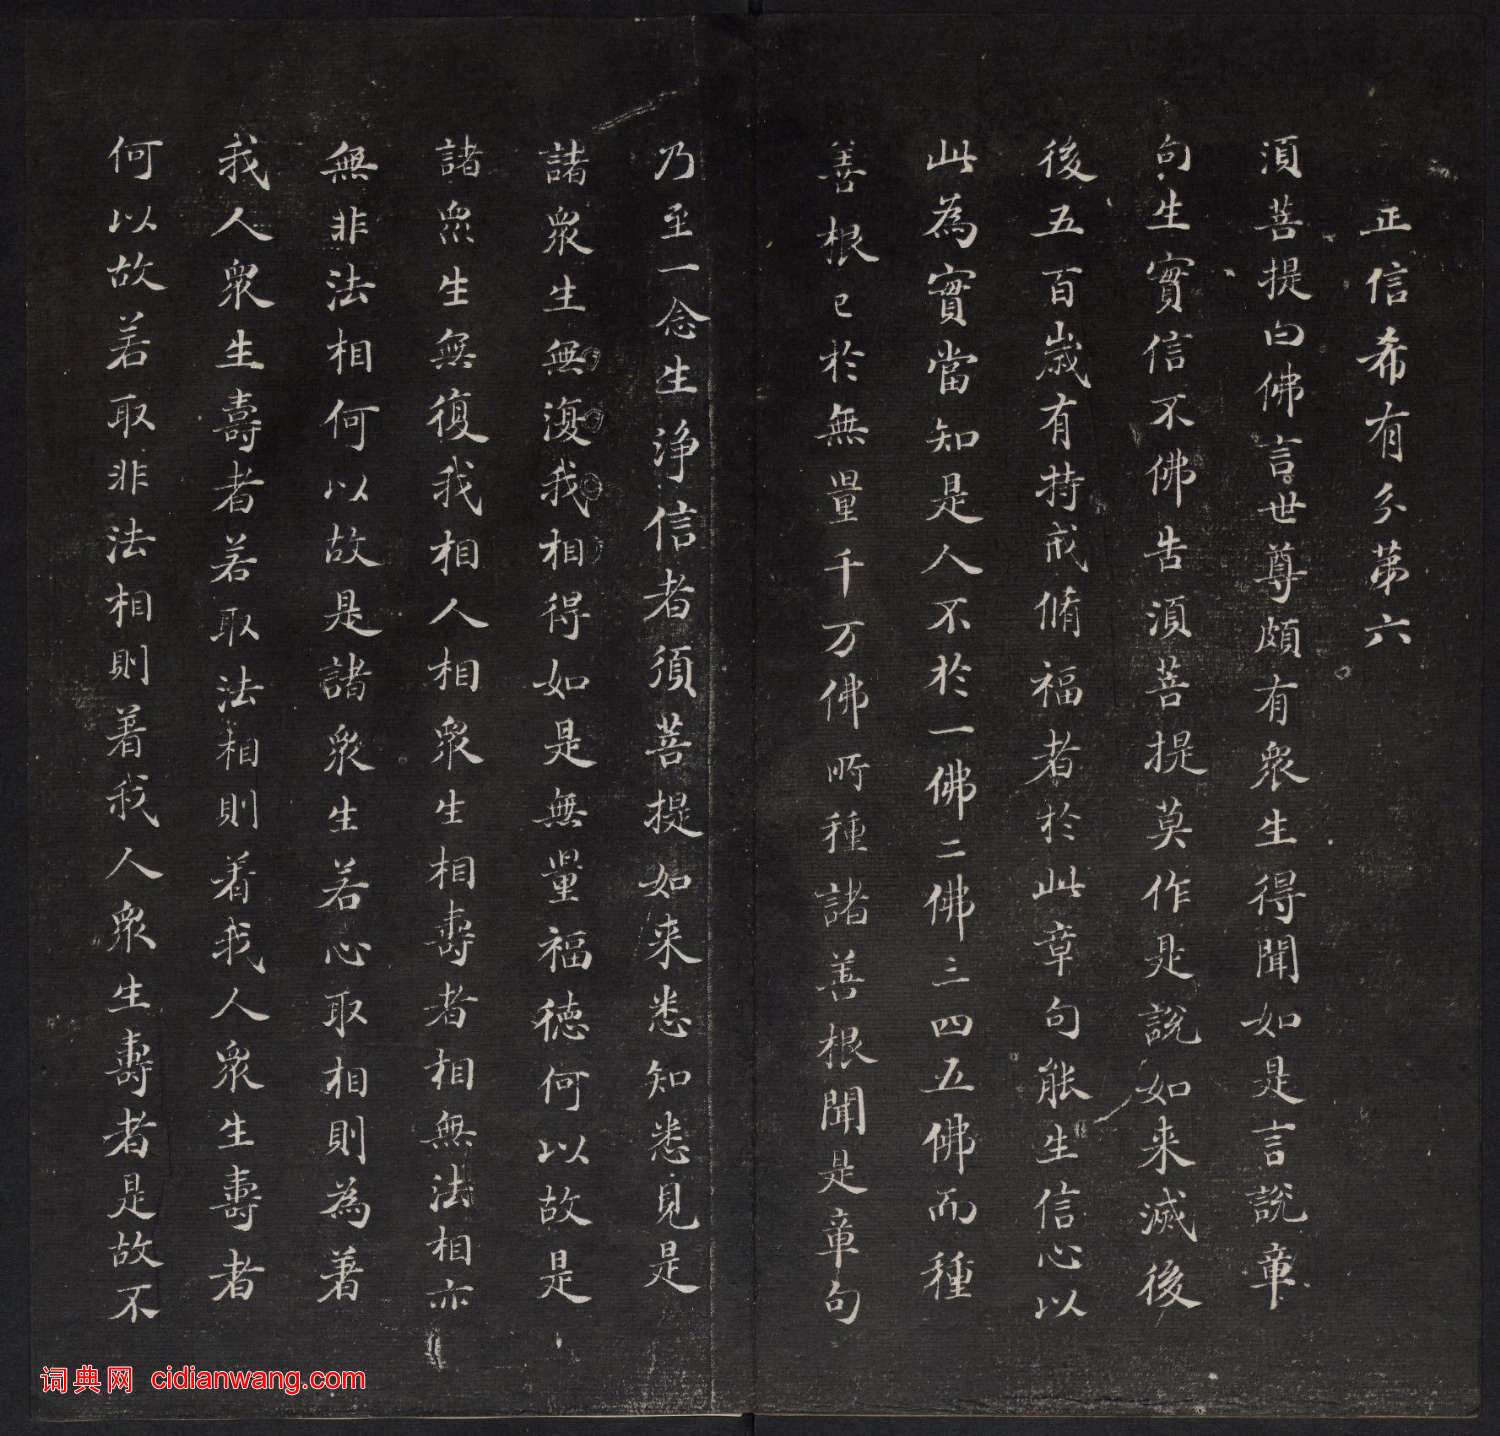 正信希有分第六
須菩提白佛言世尊頗有衆生得聞如是言說章
句生實信不佛告須菩提莫作是說如来滅後
後五百歲有持戒脩福者於此章句能生信心以
此為實當知是人不於一佛二佛三四五佛而種
善根已於無量千万佛所種諸善根聞是章句
乃至一念生淨信者須菩提如来悉知悉見是
諸衆生無復我相得如是無量福德何以故是
諸衆生無復我相人相衆生相壽者相無法相亦
無非法相何以故是諸衆生若心取相則為著
我人衆生壽者若取法相則着我人衆生壽者
何以故若取非法相則着我人衆生壽者是故不
词典网 cidianwang.com